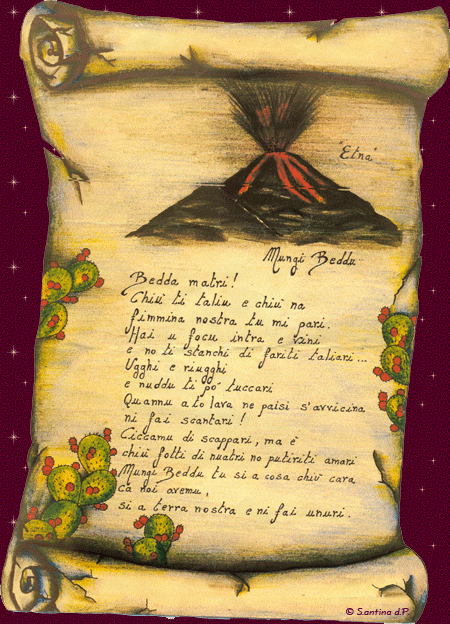 "Etna"
Mungi Beddu
Bedda matri!
Chiù ti taliu e chiù na
fimmina nostra tu mi pari.
Hai u focu intra e vini
e no ti stanchi di fariti taliari...
Ugghi e riugghi
e nuddu ti pò tuccari
Quannu a to lava ne paisi s'avvicina
ni fai scantari!
Ciccamu di scappari, ma è
chiù fotti di nuatri no putiriti amari
Mungi Beddu tu si a cosa chiù cara
ca noi avemu,
si a terra nostra e ni fai unuri.
© S.antina d.P.